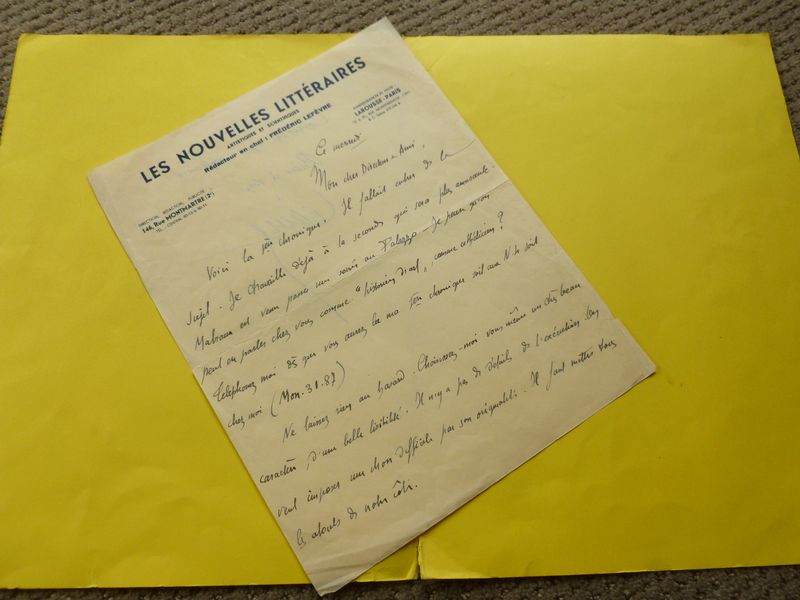 LES NOUVELLES LITTÉRAIRES
ARTISTIQUES ET SCIENTIFIQUES
Rédacteur en chef : FRÉDÉRIC LEFÈVRE
LAROUSSE - PARIS
DIRECTION, RÉDACTION, PUBLICITÉ
146, Rue MONTMARTRE (2e)
Ce mercredi
Mon cher Directeur et Ami,
Voici la chronique. Il fallait entrer dans le
sujet. Je travaille déjà à la seconde qui sera plus amusante
Malraux est venu passer une soirée au Palazzo. Je pense qu'on
peut en parler chez vous comme "historien d'art", comme esthéticien ?
Téléphonez moi dès que vous aurez lu ma chronique soit aux N. lit. soit
chez moi (Mon. 31.87)
Ne laissez rien au hasard. Choisissez-moi vous même un très beau
caractère, d'une belle lisibilité. Il n'y a pas de détails de l'exécution. On
veut imposer un difficile par son originalité. Il faut mettre tous
les atouts de notre côté.